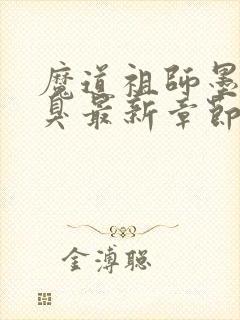 魔道祖师墨
臭最新章節
金溥聪